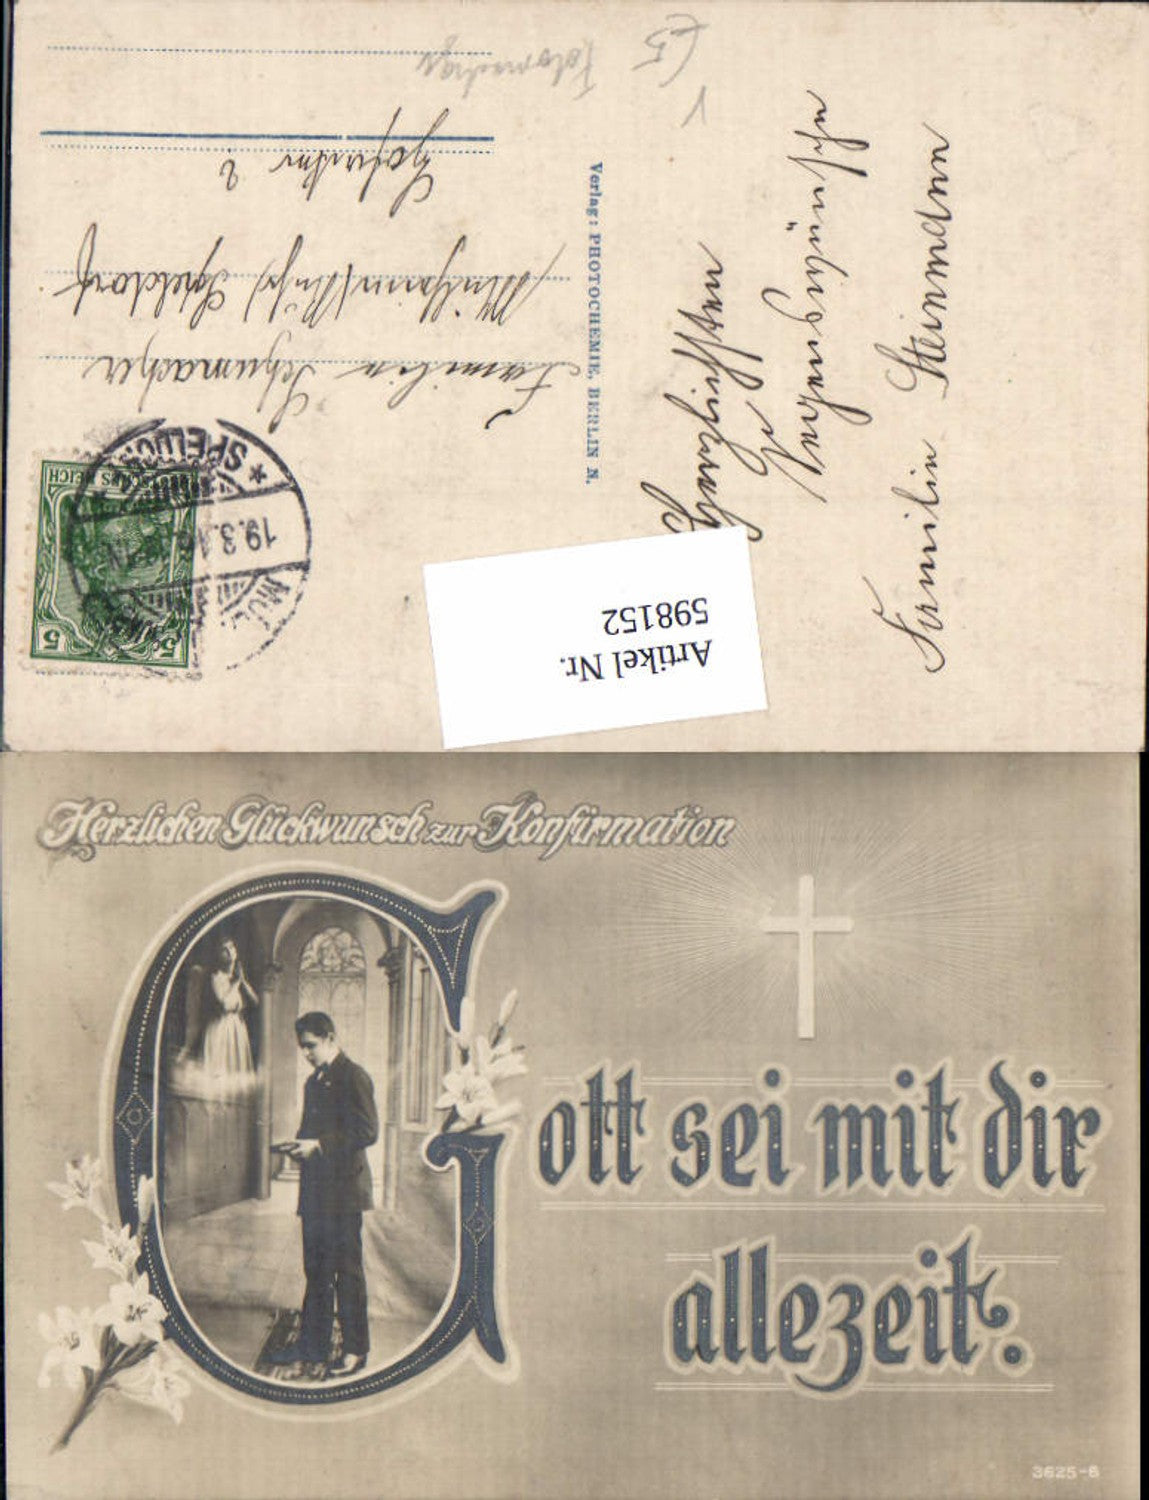 Familie Schumacher
Mülheim (Ruhr) Speldorf
2
Verlag: PHOTOCHEMIE, BERLIN N.
DEUTSCHES REICH
5 5
* SPELDO
19.3.1
MÜL
Herzlichsten
Segenswünsche
Familie Steinmann
Artikel Nr.
598152
Herzlichen Glückwunsch zur Konfirmation
Gott sei mit dir
allezeit.
3625-6